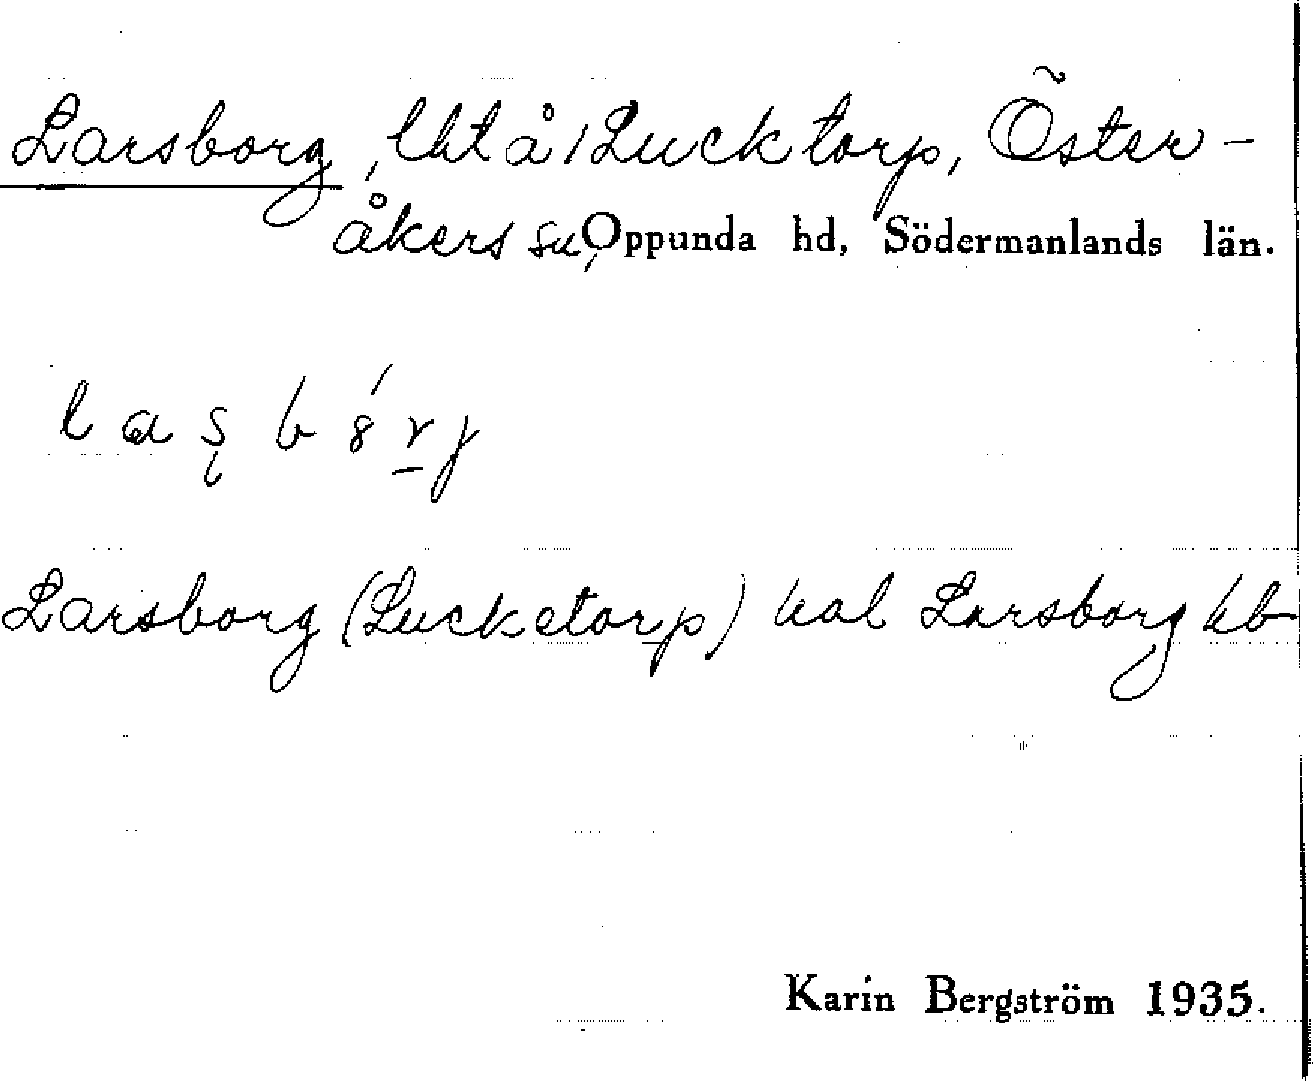 Larsborg, lht å Lucktorp, Öster-
åkers sn, Oppunda hd, Södermanlands län.
Larsborg (Lucketorp) hal Larsborg hb
Karin Bergström 1935.